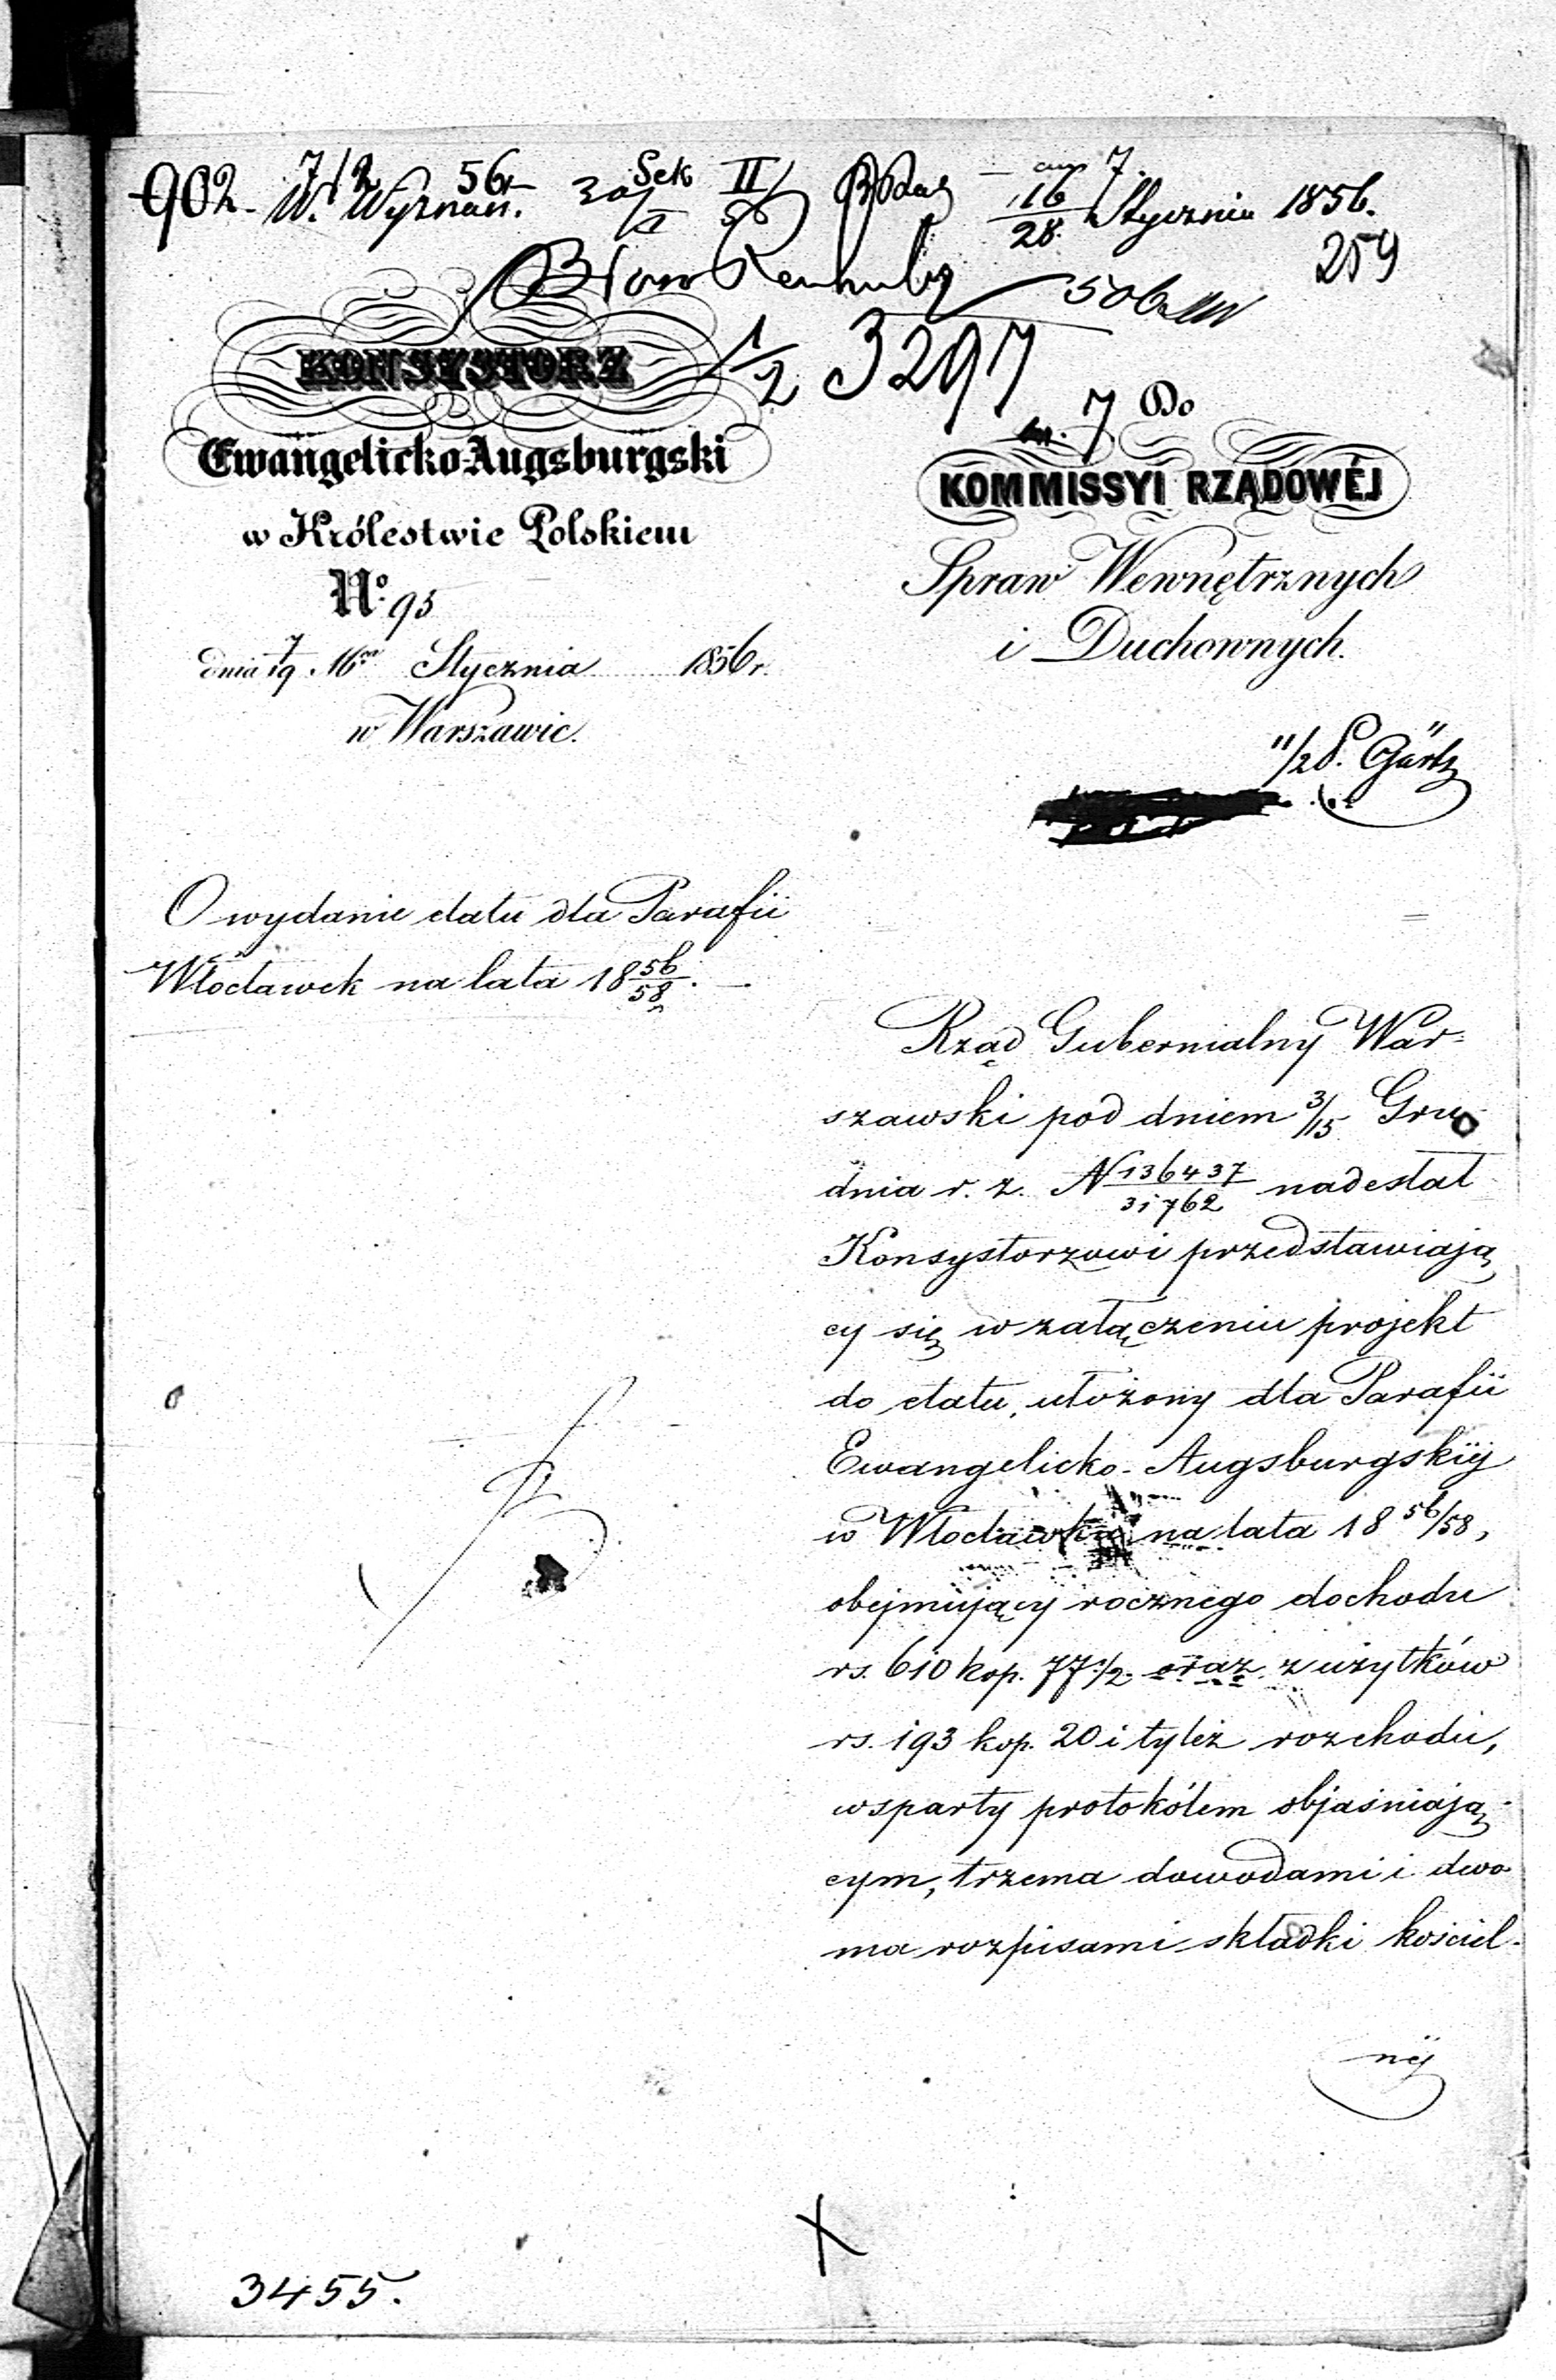 902. W. Wyznań. 7/2 56 Sek II 16/28 Stycznia 1856.
259
506
1/2 3297
KONSYSTORZ
Ewangelicko-Augsburgski
w Królestwie Polskiem
No: 95
dnia 7/19 Stycznia 1856 r.
w Warszawie.
7 Do
KOMMISSYI RZĄDOWÉJ
Spraw Wewnętrznych
i Duchownych.
O wydanie etatu dla Parafii
Włocławek na lata 18 56/58. —
Rząd Gubernialny War=
szawski pod dniem 3/15 Gru
dnia r. z. N 136437/31762 nadesłał
Konsystorzowi przedstawiają
cy się w załączeniu projekt
do etatu, ułożony dla Parafii
Ewangelicko-Augsburgskiéj
w Włocławku na lata 18 56/58,
obejmujący rocznego dochodu
rs. 610 kop. 77 1/2 oraz z użytków
rs. 193 kop. 20 i tyleż rozchodu,
wsparty protokółem objaśniają-
cym, trzema dowodami i dwo
ma rozpisami składki kościel-
néj
3455.